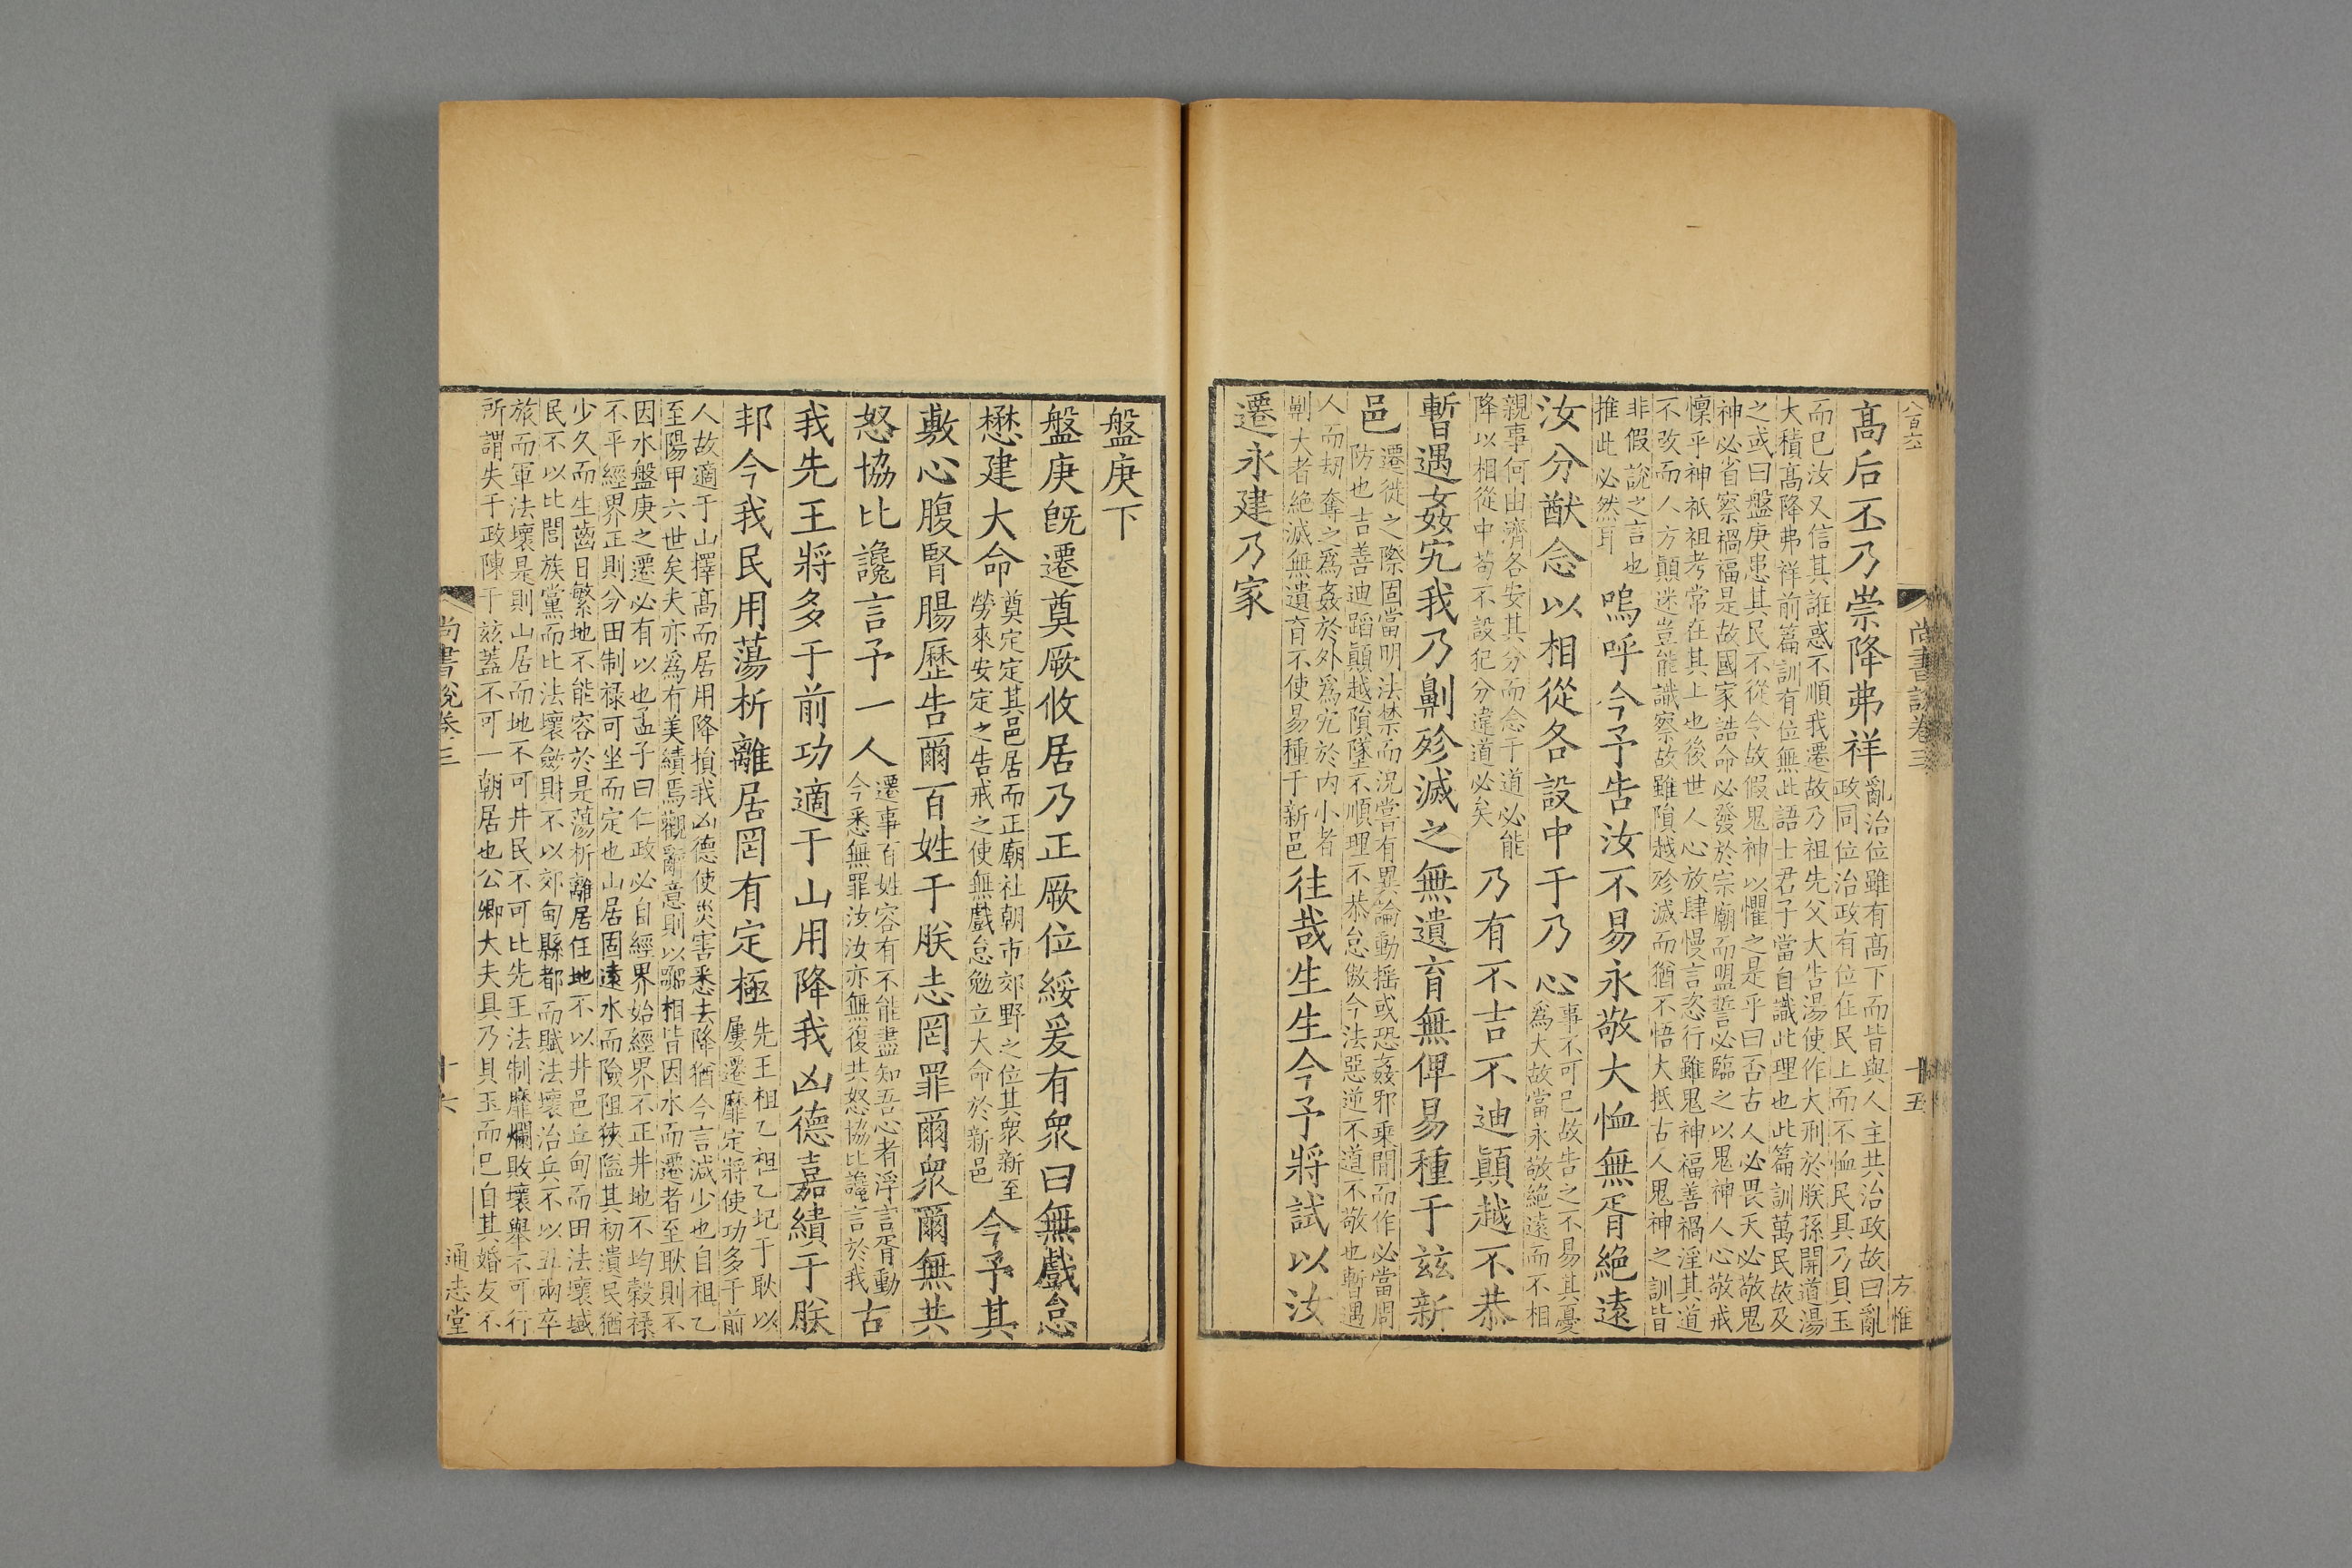 八百六
尚書說卷三
十五
方惟
高后丕乃崇降弗祥
亂治位雖有高下而皆與人主共治政故曰亂
政同位治政有位在民上而不恤民具乃貝玉
而已汝又信其誑惑不順我遷故乃祖先父大告湯使作大刑於朕孫開道湯
大積高降弗祥前篇訓有位無此語士君子當自識此理也此篇訓萬民故及
之或曰盤庚患其民不從令故假鬼神以懼之是乎曰否古人必畏天必敬鬼
神必省察禍福是故國家誥命必發於宗廟而盟誓必臨之以鬼神人心敬戒
懍乎神祇祖考常在其上也後世人心放肆慢言恣行雖鬼神福善禍淫其道
不改而人方顛迷豈能識察故雖隕越殄滅而猶不悟大抵古人鬼神之訓皆
非假說之言也
推此必然耳
嗚呼今予告汝不易永敬大恤無胥絕遠
汝分猷念以相從各設中于乃心
事不可已故告之不易其憂
為大故當永敬絕遠而不相
親事何由濟各安其分而念于道必能
降以相從中苟不設犯分違道必矣
乃有不吉不迪顛越不恭
暫遇姦宄我乃劓殄滅之無遺育無俾易種于茲新
邑
遷徙之際固當明法禁而況當有異論動搖或恐姦邪乘間而作必當周
防也吉善迪蹈顛越隕墜不順理不恭怠傲今法惡逆不道不敬也暫遇
人而劫奪之為姦於外為宄於內小者
劓大者絕滅無遺育不使易種于新邑
往哉生生今予將試以汝
遷永建乃家
盤庚下
盤庚既遷奠厥攸居乃正厥位綏爰有衆曰無戲怠
懋建大命
奠定定其邑居而正廟社朝市郊野之位其衆新至
勞來安定之告戒之使無戲怠勉立大命於新邑
今予其
敷心腹腎腸歷告爾百姓于朕志罔罪爾衆爾無共
怒協比讒言予一人
遷事百姓容有不能盡知吾心者浮言胥動
今悉無罪汝汝亦無復共怒協比讒言於我
古
我先王將多于前功適于山用降我凶德嘉績于朕
邦今我民用蕩析離居罔有定極
先王祖乙祖乙圮于耿以
屢遷靡定將使功多于前
人故適于山擇高而居用降損我凶德使災害悉去降猶今言減少也自祖乙
至陽甲六世矣夫亦為有美績焉觀辭意則以嚻相皆因水而遷者至耿則不
因水盤庚之遷必有以也孟子曰仁政必自經界始經界不正井地不均穀祿
不平經界正則分田制祿可坐而定也山居固遠水而險阻狹隘其初遺民猶
少久而生齒日繁地不能容於是蕩析離居任地不以井邑丘甸而田法壞域
民不以比閭族黨而比法壞斂財不以郊甸縣都而賦法壞治兵不以丑兩卒
旅而軍法壞是則山居而地不可井民不可比先王法制靡爛敗壞舉不可行
所謂失于政陳于茲蓋不可一朝居也公卿大夫具乃貝玉而已自其婚友不
尚書說卷三
十六
通志堂